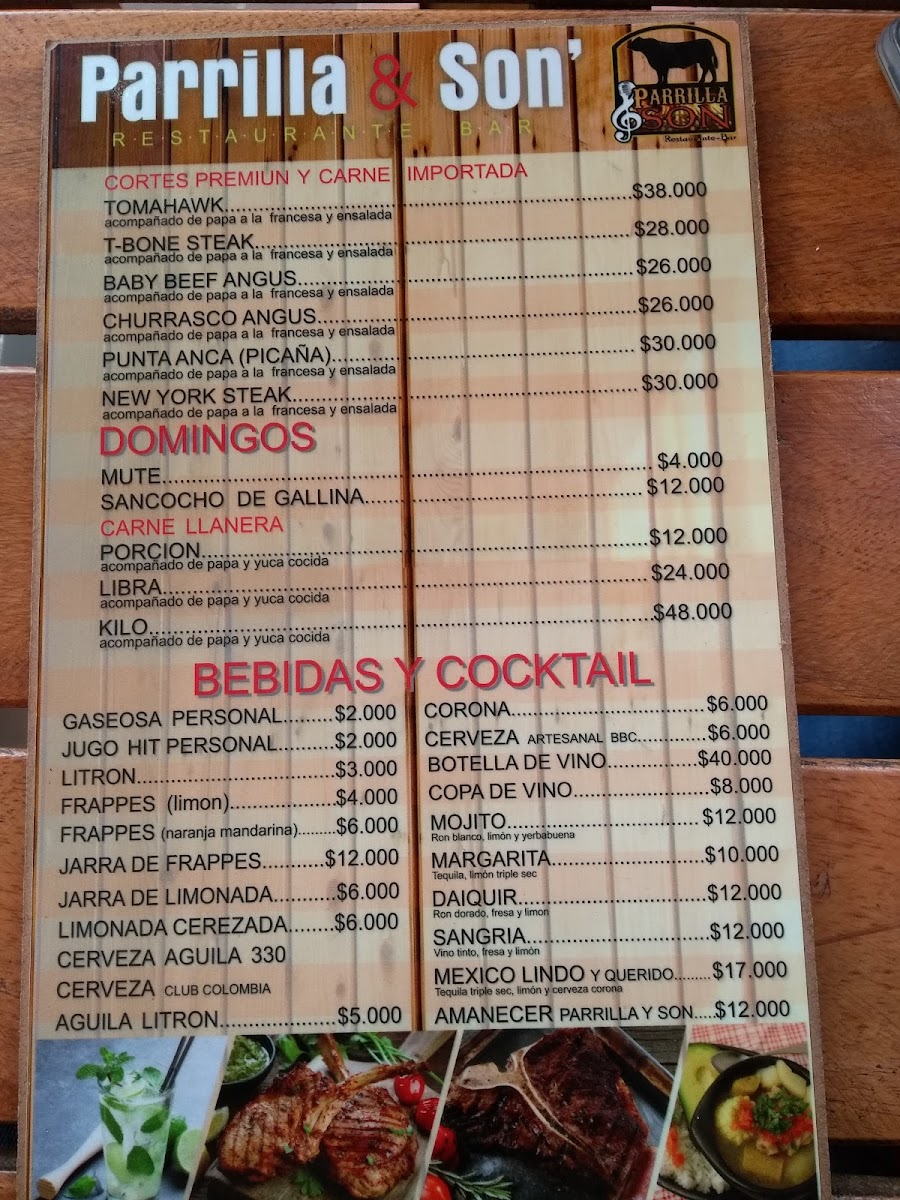 Parrilla & Son'
R·E·S·T·A·U·R·A·N·T·E B·A·R
PARRILLA
SON
Restaurante-Bar
CORTES PREMIUN Y CARNE IMPORTADA
TOMAHAWK....................$38.000
acompañado de papa a la francesa y ensalada
T-BONE STEAK....................$28.000
acompañado de papa a la francesa y ensalada
BABY BEEF ANGUS....................$26.000
acompañado de papa a la francesa y ensalada
CHURRASCO ANGUS....................$26.000
acompañado de papa a la francesa y ensalada
PUNTA ANCA (PICAÑA)....................$30.000
acompañado de papa a la francesa y ensalada
NEW YORK STEAK....................$30.000
acompañado de papa a la francesa y ensalada
DOMINGOS
MUTE....................$4.000
SANCOCHO DE GALLINA....................$12.000
CARNE LLANERA
PORCION....................$12.000
acompañado de papa y yuca cocida
LIBRA....................$24.000
acompañado de papa y yuca cocida
KILO....................$48.000
acompañado de papa y yuca cocida
BEBIDAS Y COCKTAIL
GASEOSA PERSONAL.........$2.000
JUGO HIT PERSONAL..........$2.000
LITRON....................$3.000
FRAPPES (limon)....................$4.000
FRAPPES (naranja mandarina).........$6.000
JARRA DE FRAPPES...........$12.000
JARRA DE LIMONADA..........$6.000
LIMONADA CEREZADA........$6.000
CERVEZA AGUILA 330
CERVEZA CLUB COLOMBIA
AGUILA LITRON....................$5.000
CORONA....................$6.000
CERVEZA ARTESANAL BBC............$6.000
BOTELLA DE VINO...............$40.000
COPA DE VINO....................$8.000
MOJITO....................$12.000
Ron blanco, limón y yerbabuena
MARGARITA....................$10.000
Tequila, limón triple sec
DAIQUIR....................$12.000
Ron dorado, fresa y limon
SANGRIA....................$12.000
Vino tinto, fresa y limón
MEXICO LINDO Y QUERIDO........$17.000
Tequila triple sec, limón y cerveza corona
AMANECER PARRILLA Y SON.....$12.000